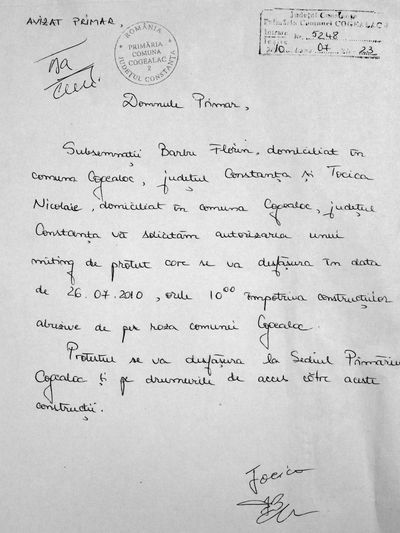 AVIZAT PRIMAR,
ROMÂNIA
PRIMĂRIA
COMUNA
COGEALAC
2
JUDEŢUL CONSTANŢA
Judeţul Constanţa
Primăria Comunei COGEALAC
Nr. 5248
2010 07 23
Domnule Primar,
Subsemnaţii Barbu Florin, domiciliat în
comuna Cogealac, judeţul Constanţa şi Tocica
Nicolaie, domiciliat în comuna Cogealac, judeţul
Constanţa vă solicităm autorizarea unui
miting de protest care se va desfăşura în data
de 26.07.2010, orele 10⁰⁰ împotriva construcţiilor
abuzive de pe raza comunei Cogealac.
Protestul se va desfăşura la Sediul Primăriei
Cogealac şi pe drumurile de acces către aceste
construcţii.
Tocica